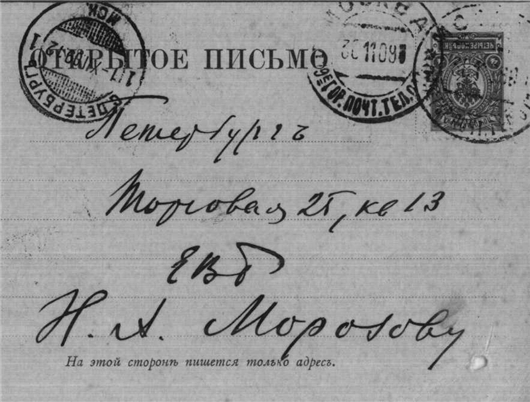 ОТКРЫТОЕ ПИСЬМО
МОСКВА
30 11 09
ГОР. ПОЧТ. ТЕЛ.
Петербургъ
Торговая 25, кв 13
ЕВБ
Н. А. Морозову
На этой сторонѣ пишется только адресъ.